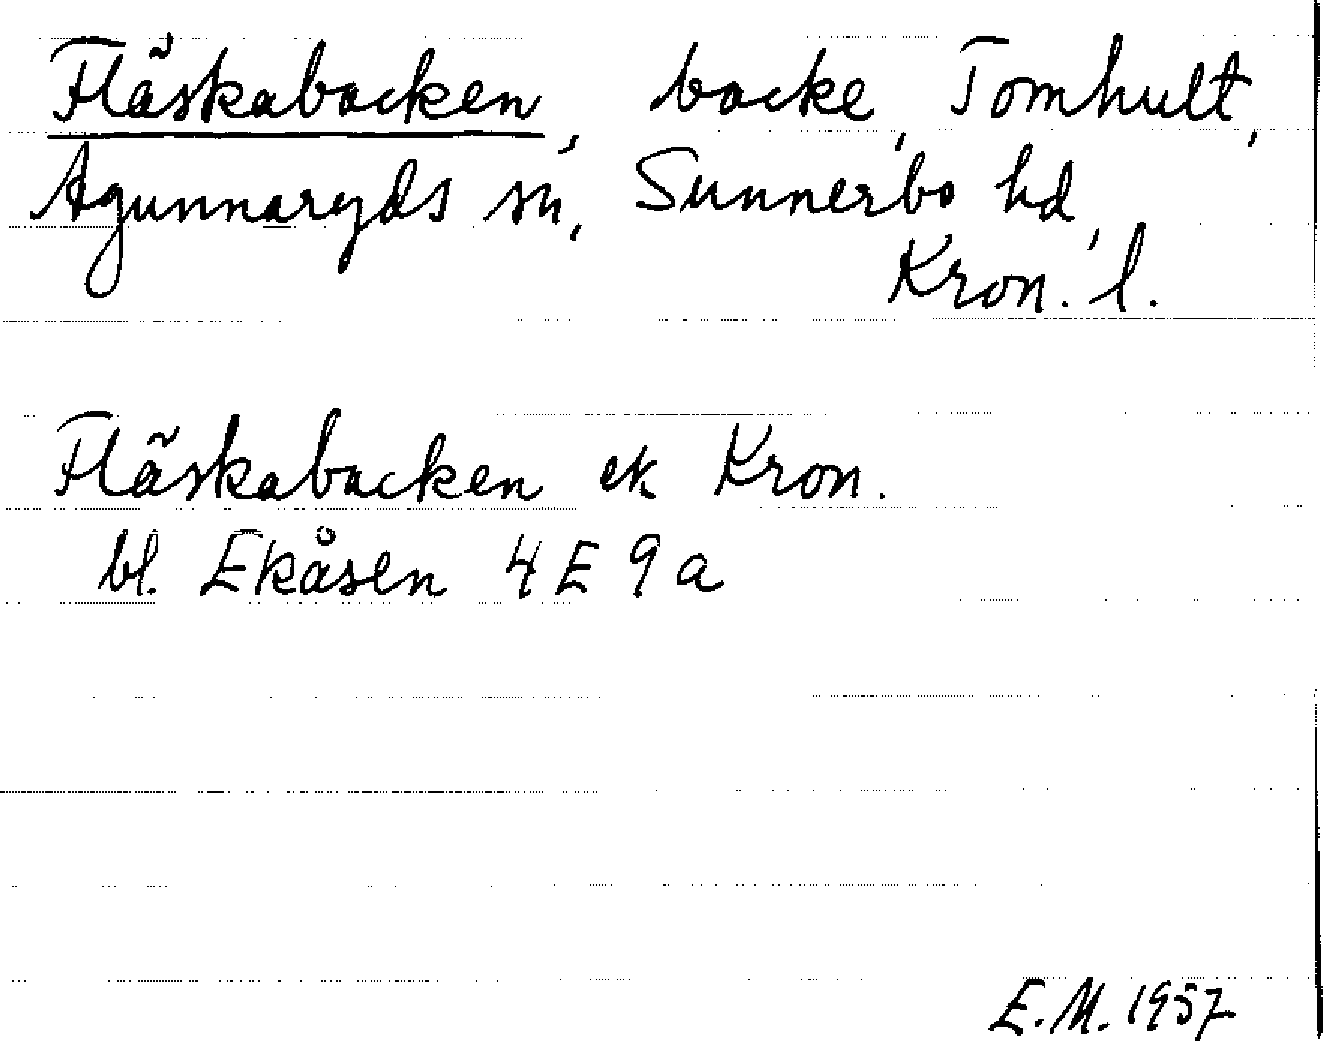 Fläskabacken, backe, Tomhult,
Agunnaryds sn, Sunnerbo hd,
Kron. l.
Fläskabacken ek Kron.
bl. Ekåsen 4E 9a
E.M. 1957